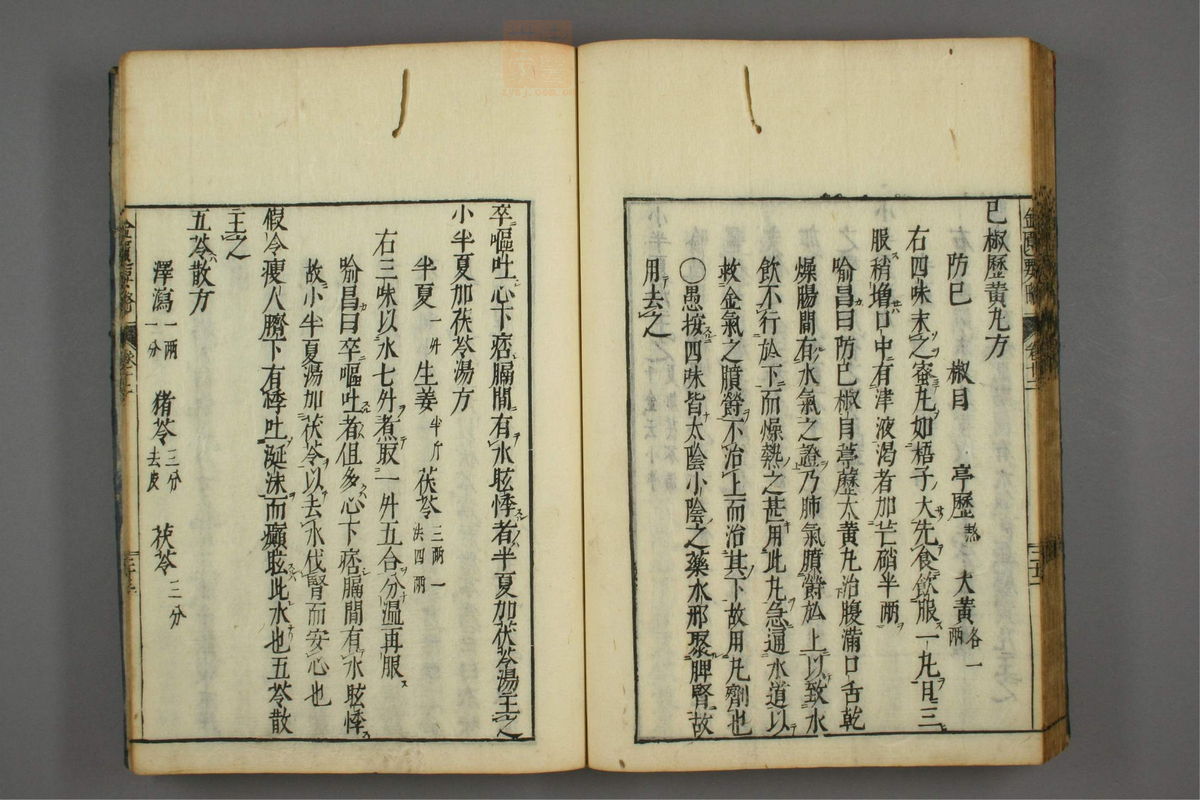 已椒歷黃丸方
防已 椒目 葶歷熬 大黃各一兩
右四味末之蜜丸如梧子大先食飲服一丸日三
服稍增口中有津液渴者加芒硝半兩
喻昌曰防已椒目葶歷大黃丸治腹滿口舌乾
燥腸間有水氣之證乃肺氣膹欝於上以致水
飲不行於下而燥熱之甚用此丸急逼水道以
救金氣之膹欝不治上而治其下故用丸劑也
○愚按四味皆太陰小陰之藥水邪聚脾腎故
用去之
卒嘔吐心下痞膈間有水眩悸者半夏加茯苓湯主之
小半夏加茯苓湯方
半夏一升 生姜半斤 茯苓三兩一法四兩
右三味以水七升煮取一升五合分溫再服
喻昌曰卒嘔吐者但多心下痞膈間有水眩悸
故小半夏湯加茯苓以去水伐腎而安心也
假令瘦人臍下有悸吐涎沫而癲眩此水也五苓散
主之
五苓散方
澤瀉一兩一分 猪苓三分去皮 茯苓三分